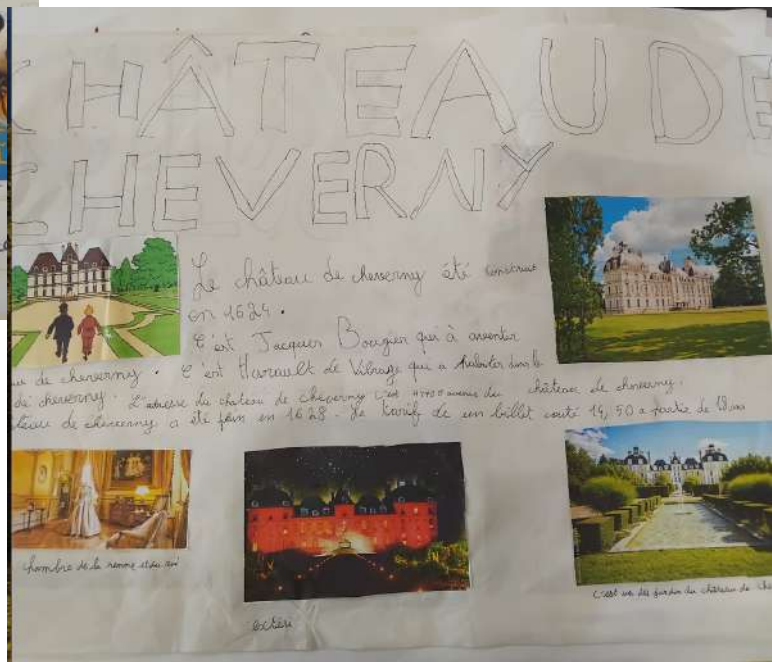 CHÂTEAU DE
CHEVERNY
Le château de cheverny été construit
en 1624.
C'est Jacques Bougier qui à inventer
de cheverny. C'est Hurault de Vibraye qui a habiter dans le
de cheverny. L'adresse du chateau de cheverny c'est avenue du château de cheverny.
de cheverny a été finis en 1628. Le tarif de un billet coute 14,50 a partir de 18 ans
chambre de la renne et du roi
extéri
c'est un des jardin du château de che